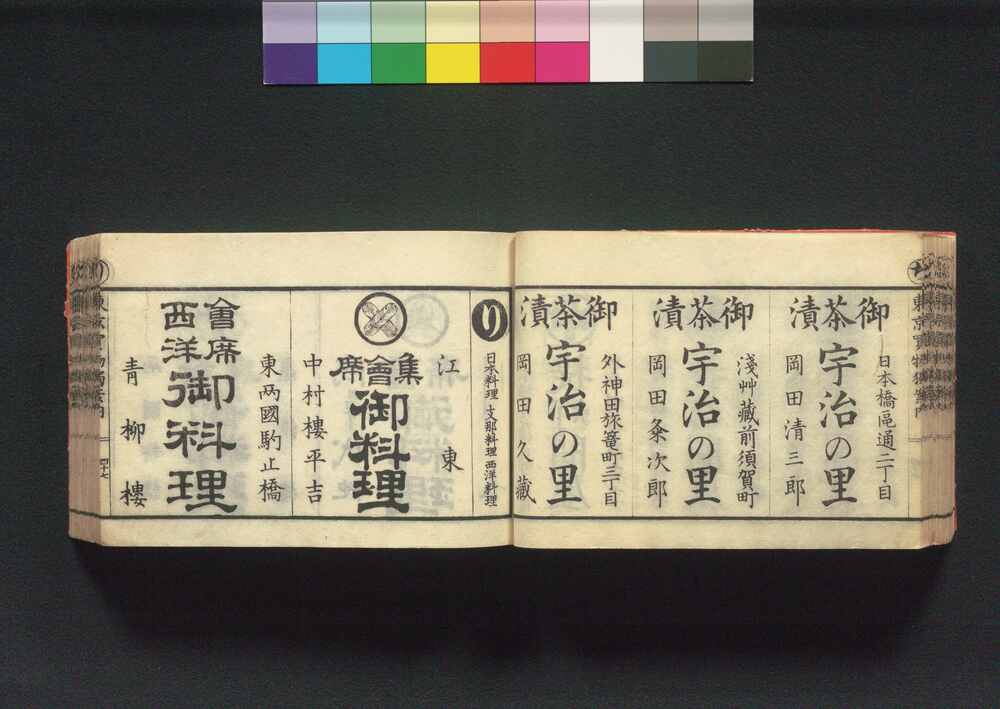 日本橋區通二丁目
御茶漬
宇治の里
岡田清三郎
淺艸藏前須賀町
御茶漬
宇治の里
岡田粂次郎
外神田旅篭町三丁目
御茶漬
宇治の里
岡田久藏
り
日本料理 支那料理 西洋料理
江東
集會席
御料理
中村樓平吉
東兩國駒止橋
會席
西洋
御料理
青柳樓
四十七